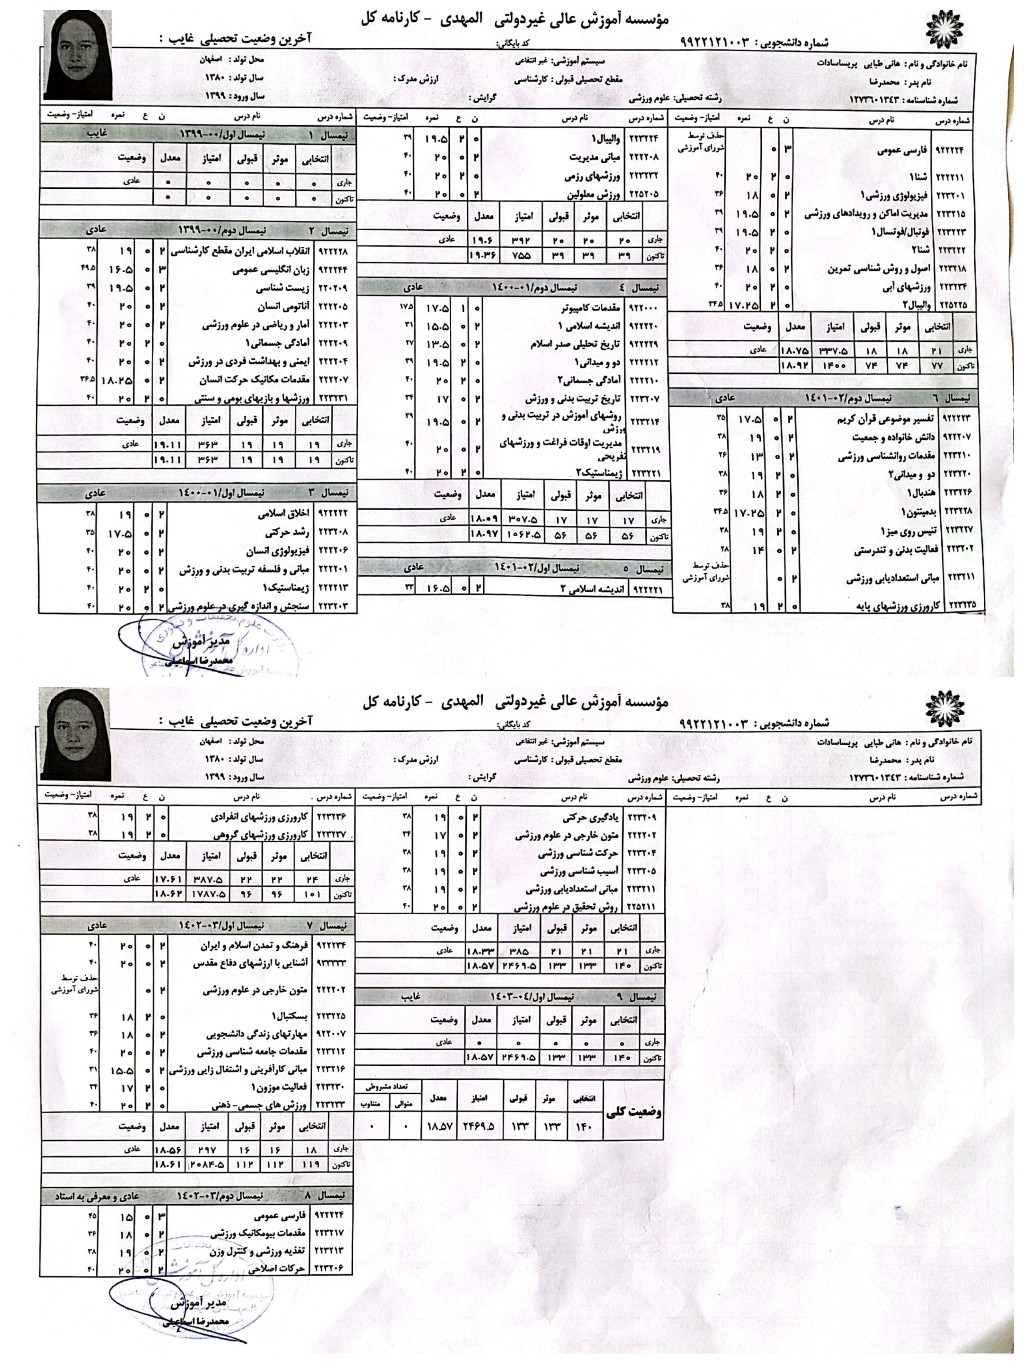 مؤسسه آموزش عالی غیردولتی المهدی - کارنامه کل
شماره دانشجویی: ۹۹۲۲۱۲۱۰۰۳
کد بایگانی:
آخرین وضعیت تحصیلی غایب :
نام خانوادگی و نام : هانی طبایی پریساسادات
سیستم آموزشی: غیر انتفاعی
محل تولد : اصفهان
نام پدر : محمدرضا
مقطع تحصیلی قبولی : کارشناسی
ارزش مدرک :
سال تولد : ۱۳۸۰
شماره شناسنامه : ۱۲۷۳۶۰۱۳۴۳
رشته تحصیلی: علوم ورزشی
گرایش :
سال ورود : ۱۳۹۹
شماره درس نام درس ن ع نمره امتیاز- وضعیت
نیمسال ۱ نیمسال اول/۰۰-۱۳۹۹ غایب
انتخابی موثر قبولی امتیاز معدل وضعیت
جاری ۰ ۰ ۰ ۰ ۰ عادی
تاکنون ۰ ۰ ۰ ۰ ۰
نیمسال ۲ نیمسال دوم/۰۰-۱۳۹۹ عادی
۹۲۲۲۲۸ انقلاب اسلامی ایران مقطع کارشناسی ۲ ۰ ۱۹ ۳۸
۹۲۲۲۴۴ زبان انگلیسی عمومی ۳ ۰ ۱۶.۵ ۴۹.۵
۲۲۰۲۰۹ زیست شناسی ۲ ۰ ۱۹.۵ ۳۹
۲۲۲۲۰۵ آناتومی انسان ۲ ۰ ۲۰ ۴۰
۲۲۲۲۰۳ آمار و ریاضی در علوم ورزشی ۲ ۰ ۲۰ ۴۰
۲۲۲۲۰۹ آمادگی جسمانی۱ ۰ ۲ ۲۰ ۴۰
۲۲۲۲۰۴ ایمنی و بهداشت فردی در ورزش ۲ ۰ ۲۰ ۴۰
۲۲۲۲۰۷ مقدمات مکانیک حرکت انسان ۲ ۰ ۱۸.۲۵ ۳۶.۵
۲۲۳۲۳۱ ورزشها و بازیهای بومی و سنتی ۰ ۲ ۲۰ ۴۰
انتخابی موثر قبولی امتیاز معدل وضعیت
جاری ۱۹ ۱۹ ۱۹ ۳۶۳ ۱۹.۱۱ عادی
تاکنون ۱۹ ۱۹ ۱۹ ۳۶۳ ۱۹.۱۱
نیمسال ۳ نیمسال اول/۰۱-۱۴۰۰ عادی
۹۲۲۲۲۲ اخلاق اسلامی ۲ ۰ ۱۹ ۳۸
۲۲۳۲۰۸ رشد حرکتی ۲ ۰ ۱۷.۵ ۳۵
۲۲۲۲۰۶ فیزیولوژی انسان ۲ ۰ ۲۰ ۴۰
۲۲۲۲۰۱ مبانی و فلسفه تربیت بدنی و ورزش ۲ ۰ ۲۰ ۴۰
۲۲۲۲۱۳ ژیمناستیک۱ ۰ ۲ ۲۰ ۴۰
۲۲۳۲۰۳ سنجش و اندازه گیری در علوم ورزشی ۲ ۰ ۲۰ ۴۰
شماره درس نام درس ن ع نمره امتیاز- وضعیت
۲۲۳۲۲۴ والیبال۱ ۰ ۲ ۱۹.۵ ۳۹
۲۲۲۲۰۸ مبانی مدیریت ۲ ۰ ۲۰ ۴۰
۲۲۳۲۳۲ ورزشهای رزمی ۰ ۲ ۲۰ ۴۰
۲۲۵۲۰۵ ورزش معلولین ۲ ۰ ۲۰ ۴۰
انتخابی موثر قبولی امتیاز معدل وضعیت
جاری ۲۰ ۲۰ ۲۰ ۳۹۲ ۱۹.۶ عادی
تاکنون ۳۹ ۳۹ ۳۹ ۷۵۵ ۱۹.۳۶
نیمسال ۴ نیمسال دوم/۰۱-۱۴۰۰ عادی
۹۲۲۰۰۰ مقدمات کامپیوتر ۱ ۰ ۱۷.۵ ۱۷.۵
۹۲۲۲۲۰ اندیشه اسلامی ۱ ۲ ۰ ۱۵.۵ ۳۱
۹۲۲۲۲۹ تاریخ تحلیلی صدر اسلام ۲ ۰ ۱۳.۵ ۲۷
۲۲۲۲۱۲ دو و میدانی۱ ۰ ۲ ۱۹.۵ ۳۹
۲۲۲۲۱۰ آمادگی جسمانی۲ ۰ ۲ ۲۰ ۴۰
۲۲۳۲۰۷ تاریخ تربیت بدنی و ورزش ۲ ۰ ۱۷ ۳۴
۲۲۳۲۱۴ روشهای آموزش در تربیت بدنی و ورزش ۲ ۰ ۱۹.۵ ۳۹
۲۲۳۲۱۹ مدیریت اوقات فراغت و ورزشهای تفریحی ۲ ۰ ۲۰ ۴۰
۲۲۳۲۲۱ ژیمناستیک۲ ۰ ۲ ۲۰ ۴۰
انتخابی موثر قبولی امتیاز معدل وضعیت
جاری ۱۷ ۱۷ ۱۷ ۳۰۷.۵ ۱۸.۰۹ عادی
تاکنون ۵۶ ۵۶ ۵۶ ۱۰۶۲.۵ ۱۸.۹۷
نیمسال ۵ نیمسال اول/۰۲-۱۴۰۱ عادی
۹۲۲۲۲۱ اندیشه اسلامی ۲ ۲ ۰ ۱۶.۵ ۳۳
شماره درس نام درس ن ع نمره امتیاز- وضعیت
۹۲۲۲۲۴ فارسی عمومی ۳ ۰ حذف توسط شورای آموزشی
۲۲۲۲۱۱ شنا۱ ۰ ۲ ۲۰ ۴۰
۲۲۳۲۰۱ فیزیولوژی ورزشی۱ ۲ ۰ ۱۸ ۳۶
۲۲۳۲۱۵ مدیریت اماکن و رویدادهای ورزشی ۲ ۰ ۱۹.۵ ۳۹
۲۲۳۲۲۳ فوتبال/فوتسال۱ ۰ ۲ ۱۹.۵ ۳۹
۲۲۳۲۲۲ شنا۲ ۰ ۲ ۲۰ ۴۰
۲۲۳۲۱۸ اصول و روش شناسی تمرین ۲ ۰ ۱۸ ۳۶
۲۲۳۲۳۴ ورزشهای آبی ۰ ۲ ۲۰ ۴۰
۲۲۵۲۲۵ والیبال۲ ۰ ۲ ۱۷.۲۵ ۳۴.۵
انتخابی موثر قبولی امتیاز معدل وضعیت
جاری ۲۱ ۱۸ ۱۸ ۳۳۷.۵ ۱۸.۷۵ عادی
تاکنون ۷۷ ۷۴ ۷۴ ۱۴۰۰ ۱۸.۹۲
نیمسال ۶ نیمسال دوم/۰۲-۱۴۰۱ عادی
۹۲۲۲۲۳ تفسیر موضوعی قرآن کریم ۲ ۰ ۱۷.۵ ۳۵
۹۲۲۲۰۷ دانش خانواده و جمعیت ۲ ۰ ۱۹ ۳۸
۲۲۳۲۱۰ مقدمات روانشناسی ورزشی ۲ ۰ ۱۳ ۲۶
۲۲۳۲۲۰ دو و میدانی۲ ۰ ۲ ۱۹ ۳۸
۲۲۳۲۲۶ هندبال۱ ۰ ۲ ۱۸ ۳۶
۲۲۳۲۲۸ بدمینتون۱ ۰ ۲ ۱۷.۲۵ ۳۴.۵
۲۲۳۲۲۷ تنیس روی میز۱ ۰ ۲ ۱۹ ۳۸
۲۲۳۲۰۲ فعالیت بدنی و تندرستی ۲ ۰ ۱۴ ۲۸
۲۲۳۲۱۱ مبانی استعدادیابی ورزشی ۲ ۰ حذف توسط شورای آموزشی
۲۲۳۲۳۵ کارورزی ورزشهای پایه ۰ ۲ ۱۹ ۳۸
مدیر آموزش
محمدرضا اسماعیلی
مؤسسه آموزش عالی غیردولتی المهدی - کارنامه کل
شماره دانشجویی: ۹۹۲۲۱۲۱۰۰۳
کد بایگانی:
آخرین وضعیت تحصیلی غایب :
نام خانوادگی و نام : هانی طبایی پریساسادات
سیستم آموزشی: غیر انتفاعی
محل تولد : اصفهان
نام پدر : محمدرضا
مقطع تحصیلی قبولی : کارشناسی
ارزش مدرک :
سال تولد : ۱۳۸۰
شماره شناسنامه : ۱۲۷۳۶۰۱۳۴۳
رشته تحصیلی: علوم ورزشی
گرایش :
سال ورود : ۱۳۹۹
شماره درس نام درس ن ع نمره امتیاز- وضعیت
۲۲۳۲۳۶ کارورزی ورزشهای انفرادی ۰ ۲ ۱۹ ۳۸
۲۲۳۲۳۷ کارورزی ورزشهای گروهی ۰ ۲ ۱۹ ۳۸
انتخابی موثر قبولی امتیاز معدل وضعیت
جاری ۲۴ ۲۲ ۲۲ ۳۸۷.۵ ۱۷.۶۱ عادی
تاکنون ۱۰۱ ۹۶ ۹۶ ۱۷۸۷.۵ ۱۸.۶۲
نیمسال ۷ نیمسال اول/۰۳-۱۴۰۲ عادی
۹۲۲۲۳۴ فرهنگ و تمدن اسلام و ایران ۲ ۰ ۲۰ ۴۰
۹۳۳۳۳۳ آشنایی با ارزشهای دفاع مقدس ۲ ۰ ۲۰ ۴۰
۲۲۲۲۰۲ متون خارجی در علوم ورزشی ۲ ۰ حذف توسط شورای آموزشی
۲۲۳۲۲۵ بسکتبال۱ ۰ ۲ ۱۸ ۳۶
۹۲۲۰۰۷ مهارتهای زندگی دانشجویی ۲ ۰ ۱۸ ۳۶
۲۲۳۲۱۲ مقدمات جامعه شناسی ورزشی ۲ ۰ ۲۰ ۴۰
۲۲۳۲۱۶ مبانی کارآفرینی و اشتغال زایی ورزشی ۲ ۰ ۱۵.۵ ۳۱
۲۲۳۲۳۰ فعالیت موزون۱ ۰ ۲ ۱۷ ۳۴
۲۲۳۲۳۳ ورزش های جسمی- ذهنی ۰ ۲ ۲۰ ۴۰
انتخابی موثر قبولی امتیاز معدل وضعیت
جاری ۱۸ ۱۶ ۱۶ ۲۹۷ ۱۸.۵۶ عادی
تاکنون ۱۱۹ ۱۱۲ ۱۱۲ ۲۰۸۴.۵ ۱۸.۶۱
نیمسال ۸ نیمسال دوم/۰۳-۱۴۰۲ عادی و معرفی به استاد
۹۲۲۲۲۴ فارسی عمومی ۳ ۰ ۱۵ ۴۵
۲۲۳۲۱۷ مقدمات بیومکانیک ورزشی ۲ ۰ ۱۸ ۳۶
۲۲۳۲۱۳ تغذیه ورزشی و کنترل وزن ۲ ۰ ۱۹ ۳۸
۲۲۳۲۰۶ حرکات اصلاحی ۲ ۰ ۲۰ ۴۰
شماره درس نام درس ن ع نمره امتیاز- وضعیت
۲۲۳۲۰۹ یادگیری حرکتی ۲ ۰ ۱۹ ۳۸
۲۲۲۲۰۲ متون خارجی در علوم ورزشی ۲ ۰ ۱۷ ۳۴
۲۲۳۲۰۴ حرکت شناسی ورزشی ۲ ۰ ۱۹ ۳۸
۲۲۳۲۰۵ آسیب شناسی ورزشی ۲ ۰ ۱۹ ۳۸
۲۲۳۲۱۱ مبانی استعدادیابی ورزشی ۲ ۰ ۱۹ ۳۸
۲۲۵۲۱۱ روش تحقیق در علوم ورزشی ۲ ۰ ۲۰ ۴۰
انتخابی موثر قبولی امتیاز معدل وضعیت
جاری ۲۱ ۲۱ ۲۱ ۳۸۵ ۱۸.۳۳ عادی
تاکنون ۱۴۰ ۱۳۳ ۱۳۳ ۲۴۶۹.۵ ۱۸.۵۷
نیمسال ۹ نیمسال اول/۰۴-۱۴۰۳ غایب
انتخابی موثر قبولی امتیاز معدل وضعیت
جاری ۰ ۰ ۰ ۰ ۰ عادی
تاکنون ۱۴۰ ۱۳۳ ۱۳۳ ۲۴۶۹.۵ ۱۸.۵۷
وضعیت کلی انتخابی موثر قبولی امتیاز معدل تعداد مشروطی
متوالی متناوب
۱۴۰ ۱۳۳ ۱۳۳ ۲۴۶۹.۵ ۱۸.۵۷ ۰ ۰
شماره درس نام درس ن ع نمره امتیاز- وضعیت
مدیر آموزش
محمدرضا اسماعیلی